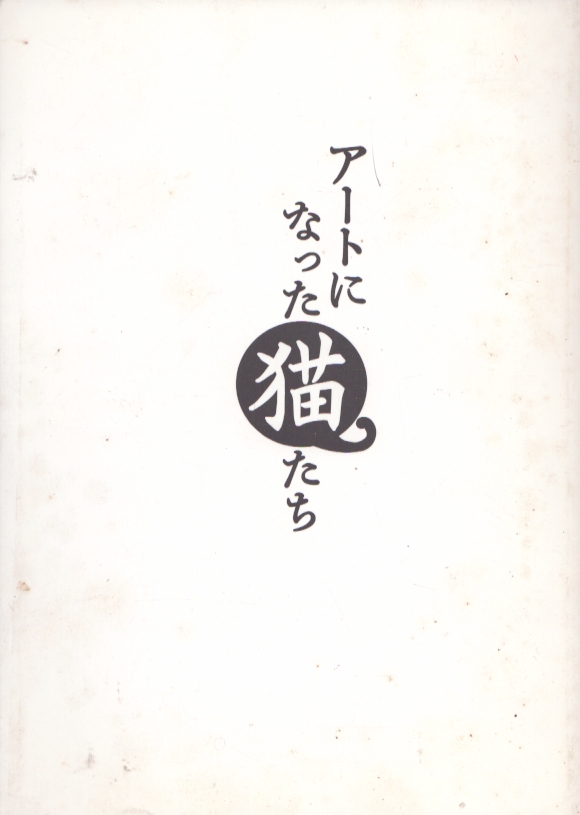 アートに
なった猫たち